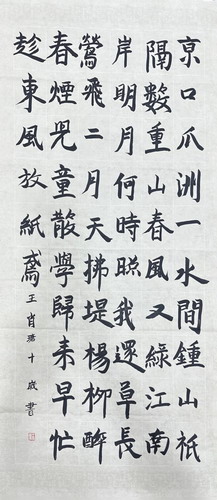 亰口瓜洲一水間鍾山祇
隔數重山春風又綠江南
岸明月何時照我還草長
鶯飛二月天拂堤楊柳醉
春煙兒童散學歸来早忙
趁東風放紙鳶
王肖十歲書